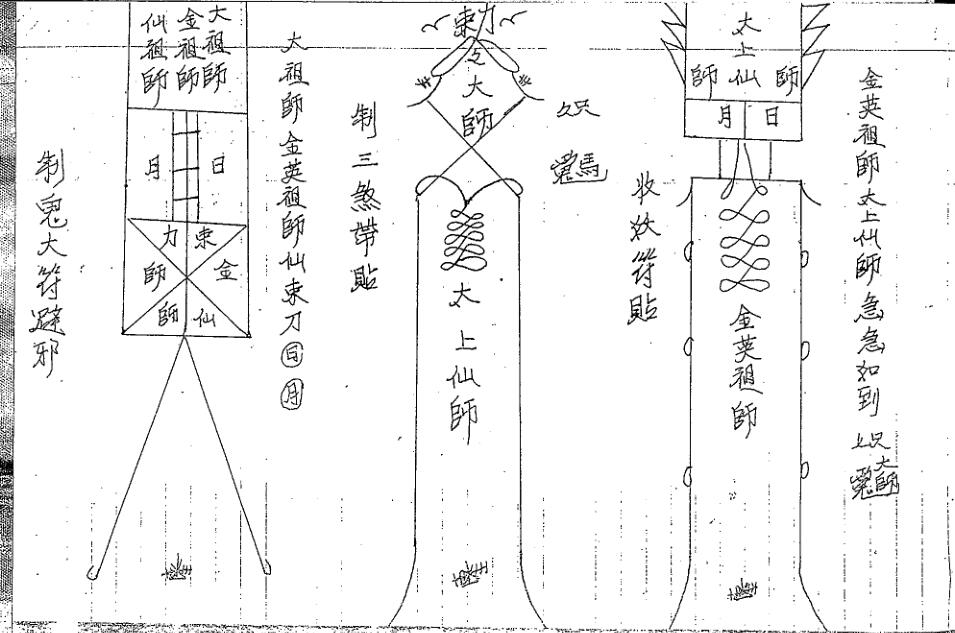 金英祖師太上仙師急急如到
大師
太上仙師
師
日
月
金英祖師
收妖符貼
勅
令
大師
太上仙師
制三煞帶貼
大祖師金英祖師仙束刀日月
大祖師
金祖師
仙祖師
日
月
束力
金
師
仙
師
制鬼大符避邪